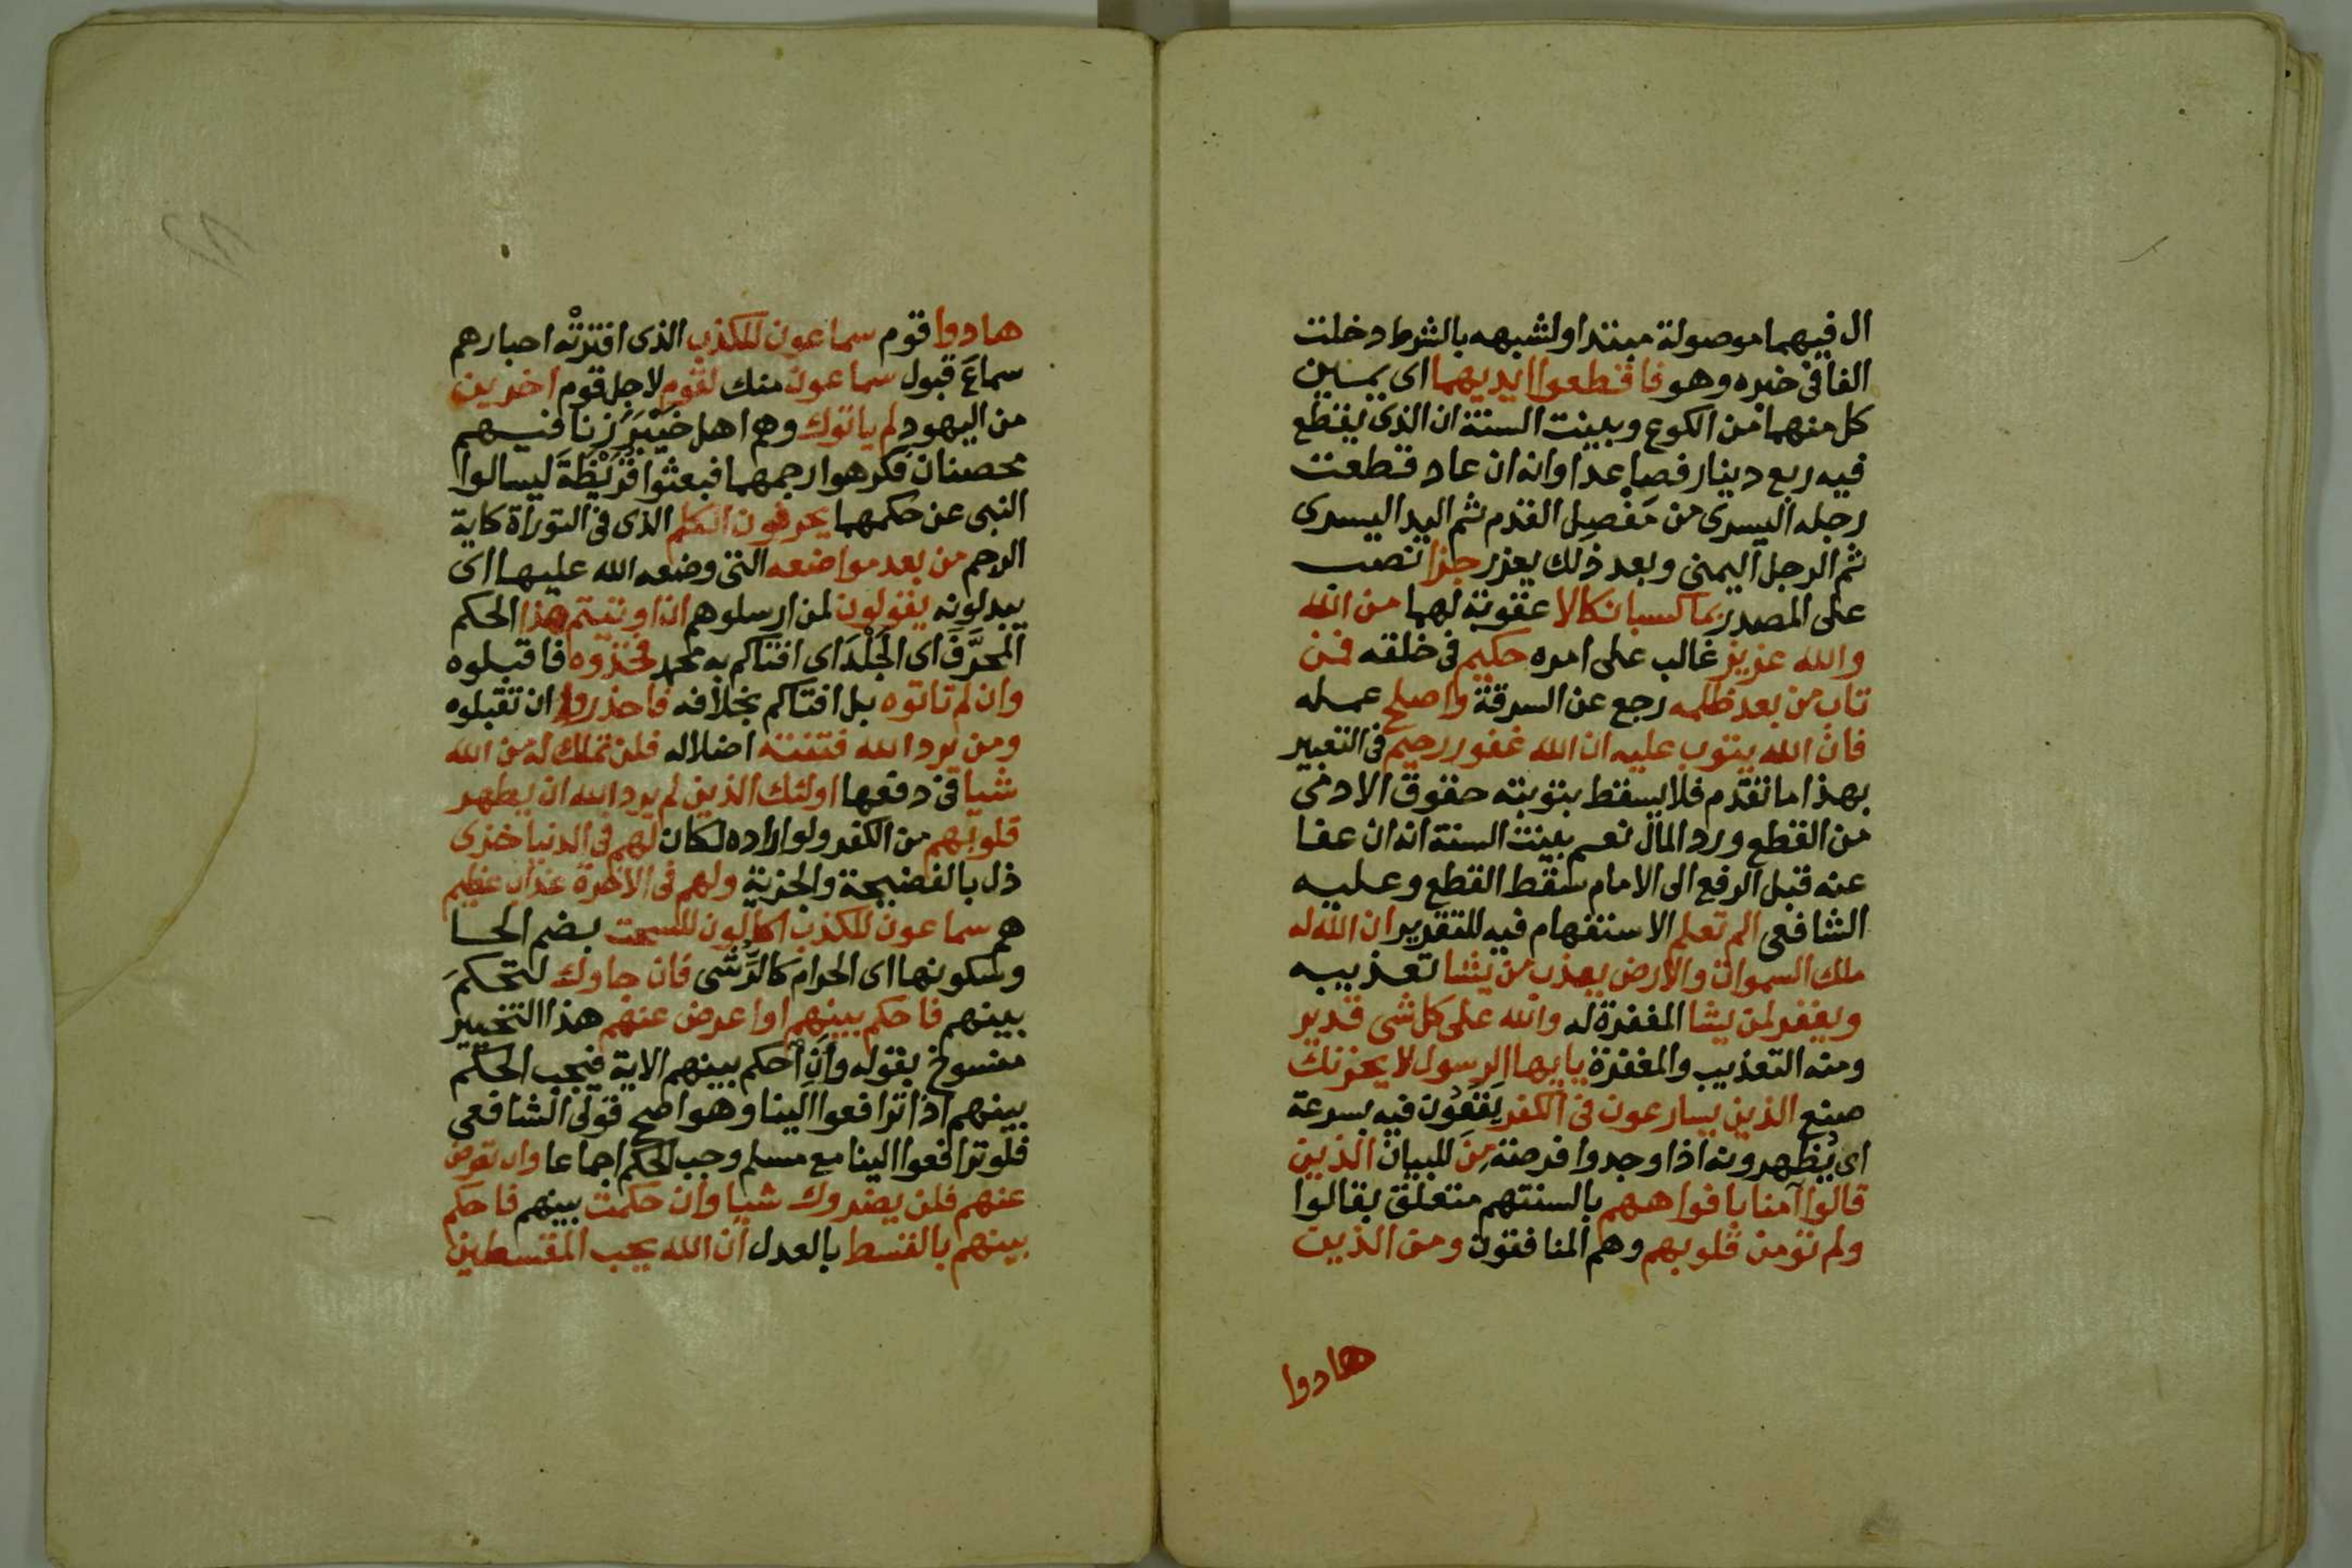 ال فيهما موصولة مبتدا ولشبهه بالشرط دخلت
الفا فى خبره وهو فاقطعوا ايديهما اى يمين
كل منهما من الكوع وبينت السنة ان الذى يقطع
فيه ربع دينار فصاعدا وانه ان عاد قطعت
رجله اليسرى من مَفْصِل القدم ثم اليد اليسرى
ثم الرجل اليمنى وبعد ذلك يعزر جزا نصب
على المصدر بما كسبا نكالا عقوبة لهما من الله
والله عزيز غالب على امره حكيم فى خلقه فمن
تاب من بعد ظلمه رجع عن السرقة واصلح عمله
فان الله يتوب عليه ان الله غفور رحيم فى التعبير
بهذا ما تقدم فلا يسقط بتوبته حقوق الادمى
من القطع ورد المال نعم بينت السنة انه ان عفا
عنه قبل الرفع الى الامام سقط القطع وعليه
الشافعى الم تعلم الاستفهام فيه للتقدير ان الله له
ملك السموات والارض يعذب من يشا تعذيبه
ويغفر لمن يشا المغفرة له والله على كل شى قدير
ومنه التعذيب والمغفرة يايها الرسول لا يحزنك
صنع الذين يسارعون فى الكفر يَقَعُون فيه بسرعة
اى يُظهرونه اذا وجدوا فرصة مِنَ للبيان الذين
قالوا آمنا بافواههم بالسنتهم متعلق بقالوا
ولم تؤمن قلوبهم وهم المنافقون ومن الذين
هادوا
هادوا قوم سماعون للكذب الذى افترتْه احبارهم
سماعَ قبول سماعون منك لقوم لاجل قوم اخرين
من اليهود لم ياتوك وهم اهل خَيْبَرَ زنا فيهم
محصنان فكرهوا رجمهما فبعثوا قُرَيْظَةَ ليسالوا
النبى عن حكمهما يحرفون الكلم الذى فى التوراة كاية
الرجم من بعد مواضعه التى وضعه الله عليها اى
يبدلونه يقولون لمن ارسلوهم ان اوتيتم هذا الحكم
المحرَّفَ اى الجَلْدَ اى افتاكم به محمد فخذوه فاقبلوه
وان لم تاتوه بل افتاكم بخلافه فاحذروا ان تقبلوه
ومن يرد الله فتنته اضلاله فلن تملك له من الله
شيا فى دفعها اولئك الذين لم يرد الله ان يطهر
قلوبهم من الكفر ولو اراده لكان لهم فى الدنيا خزى
ذل بالفضيحة والجزية ولهم فى الاخرة عذاب عظيم
هم سماعون للكذب اكالون للسحت بضم الحا
وسكونها اى الحرام كالرُشى فان جاوك لتحكمَ
بينهم فاحكم بينهم او اعرض عنهم هذا التخيير
منسوخ بقوله وأنِ احكم بينهم الاية فيجب الحكم
بينهم اذا ترافعوا الينا وهو اصح قولى الشافعى
فلو ترافعوا الينا مع مسلم وجب الحكم اجماعا وان تعرض
عنهم فلن يضروك شيا وان حكمت بينهم فاحكم
بينهم بالقسط بالعدل ان الله يحب المقسطين